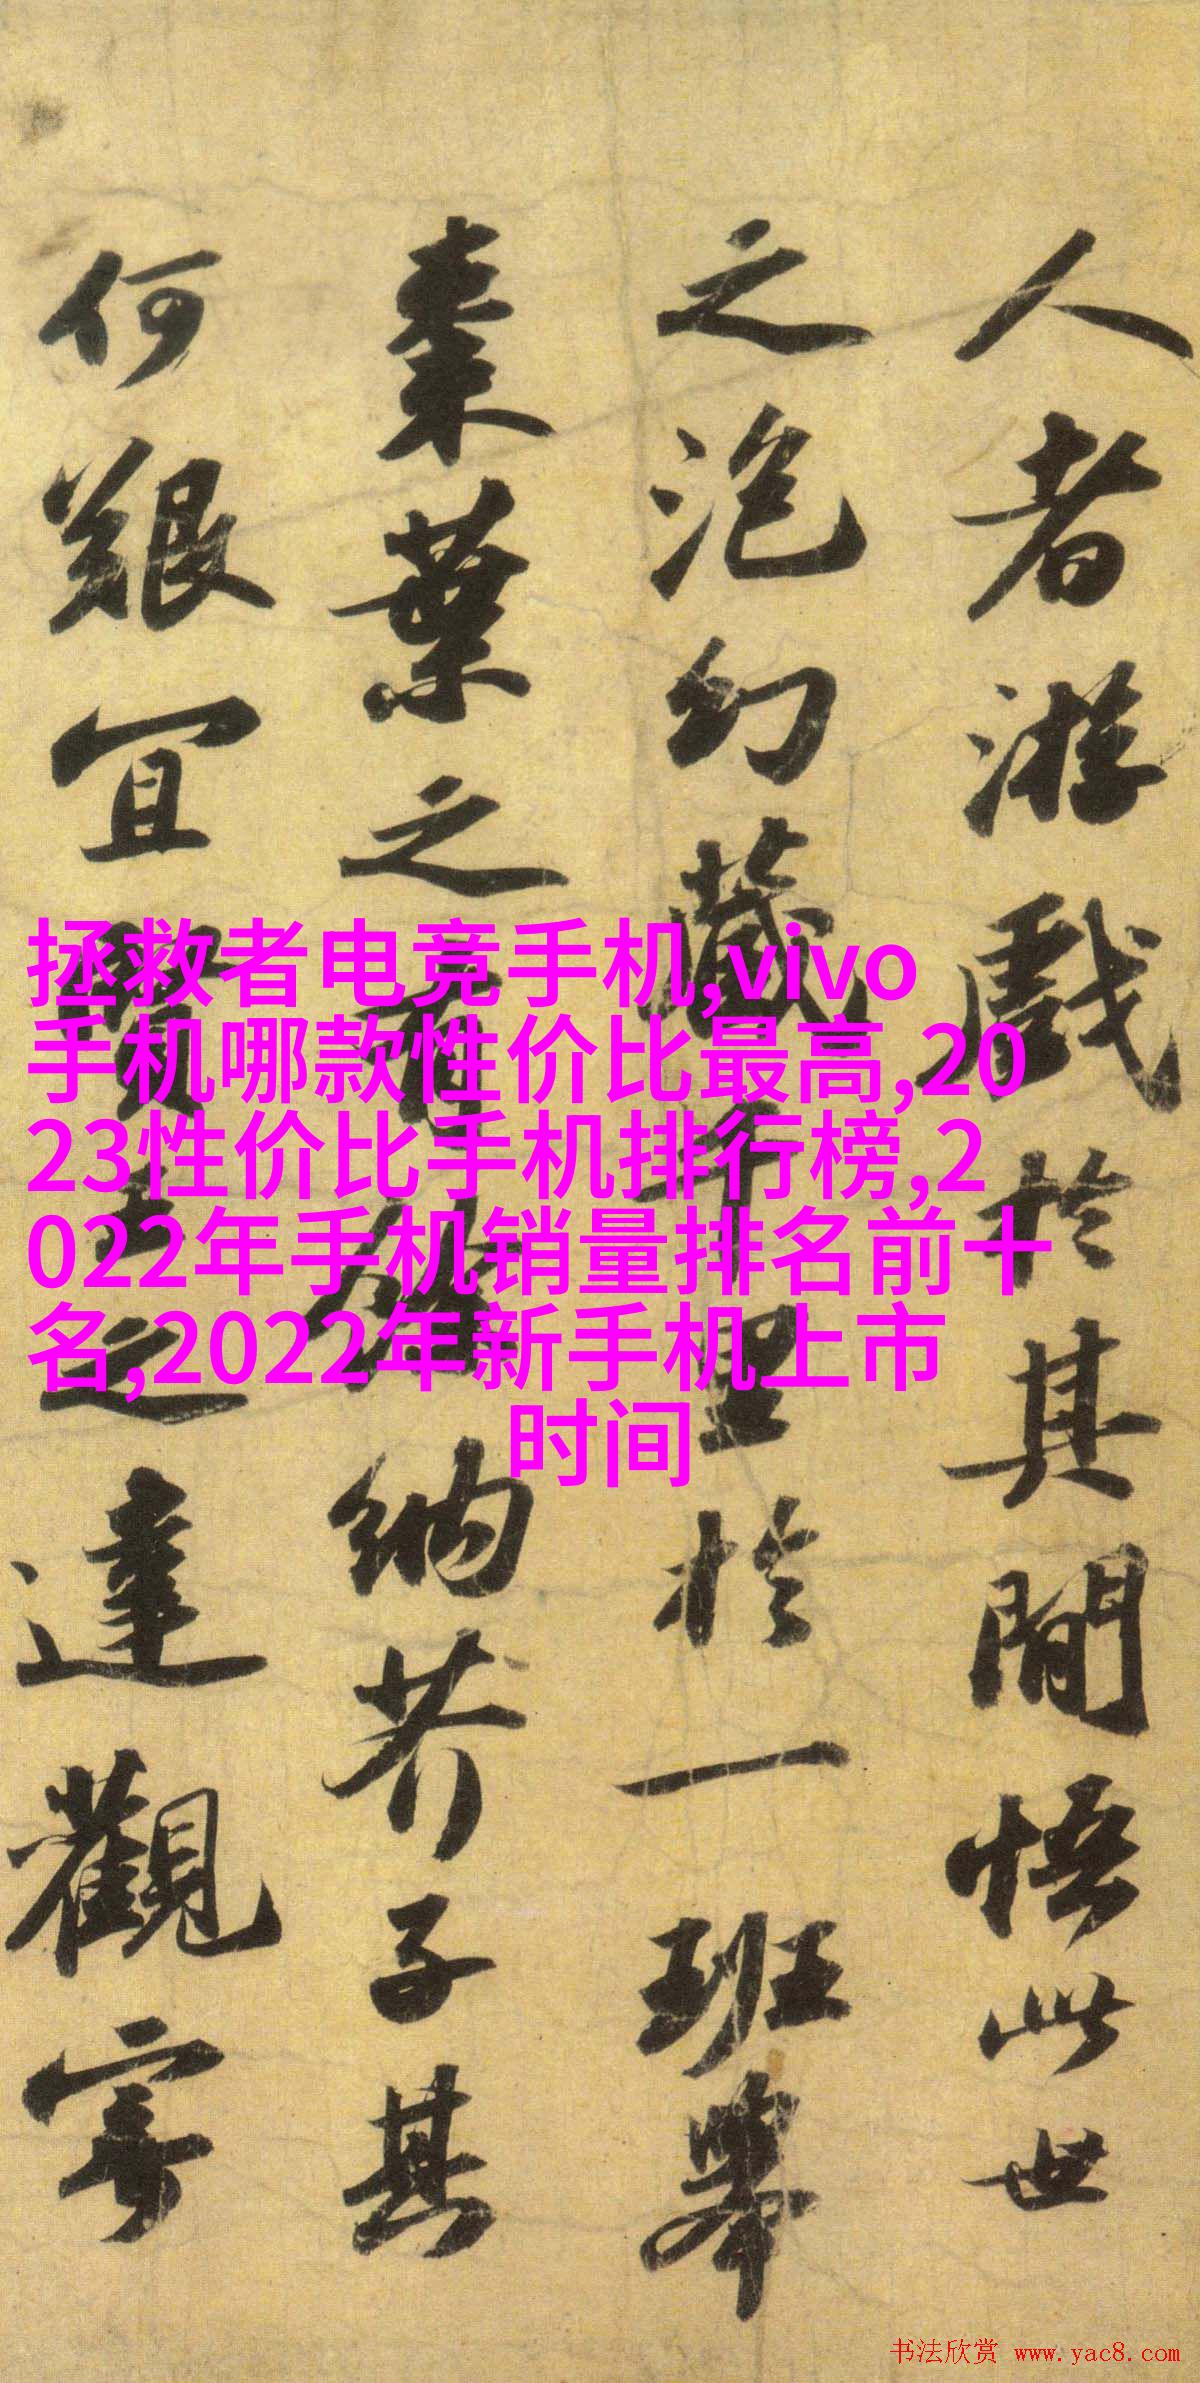 人者游戲於其間悟此世
之泡幻藏千里於一班舉
棗葉之有餘納芥子其
何艱宜賢王之達觀寄
拯救者电竞手机,vivo
手机哪款性价比最高,20
23性价比手机排行榜,2
022年手机销量排名前十
名,2022年新手机上市
时间
书法欣赏 www.yac8.com